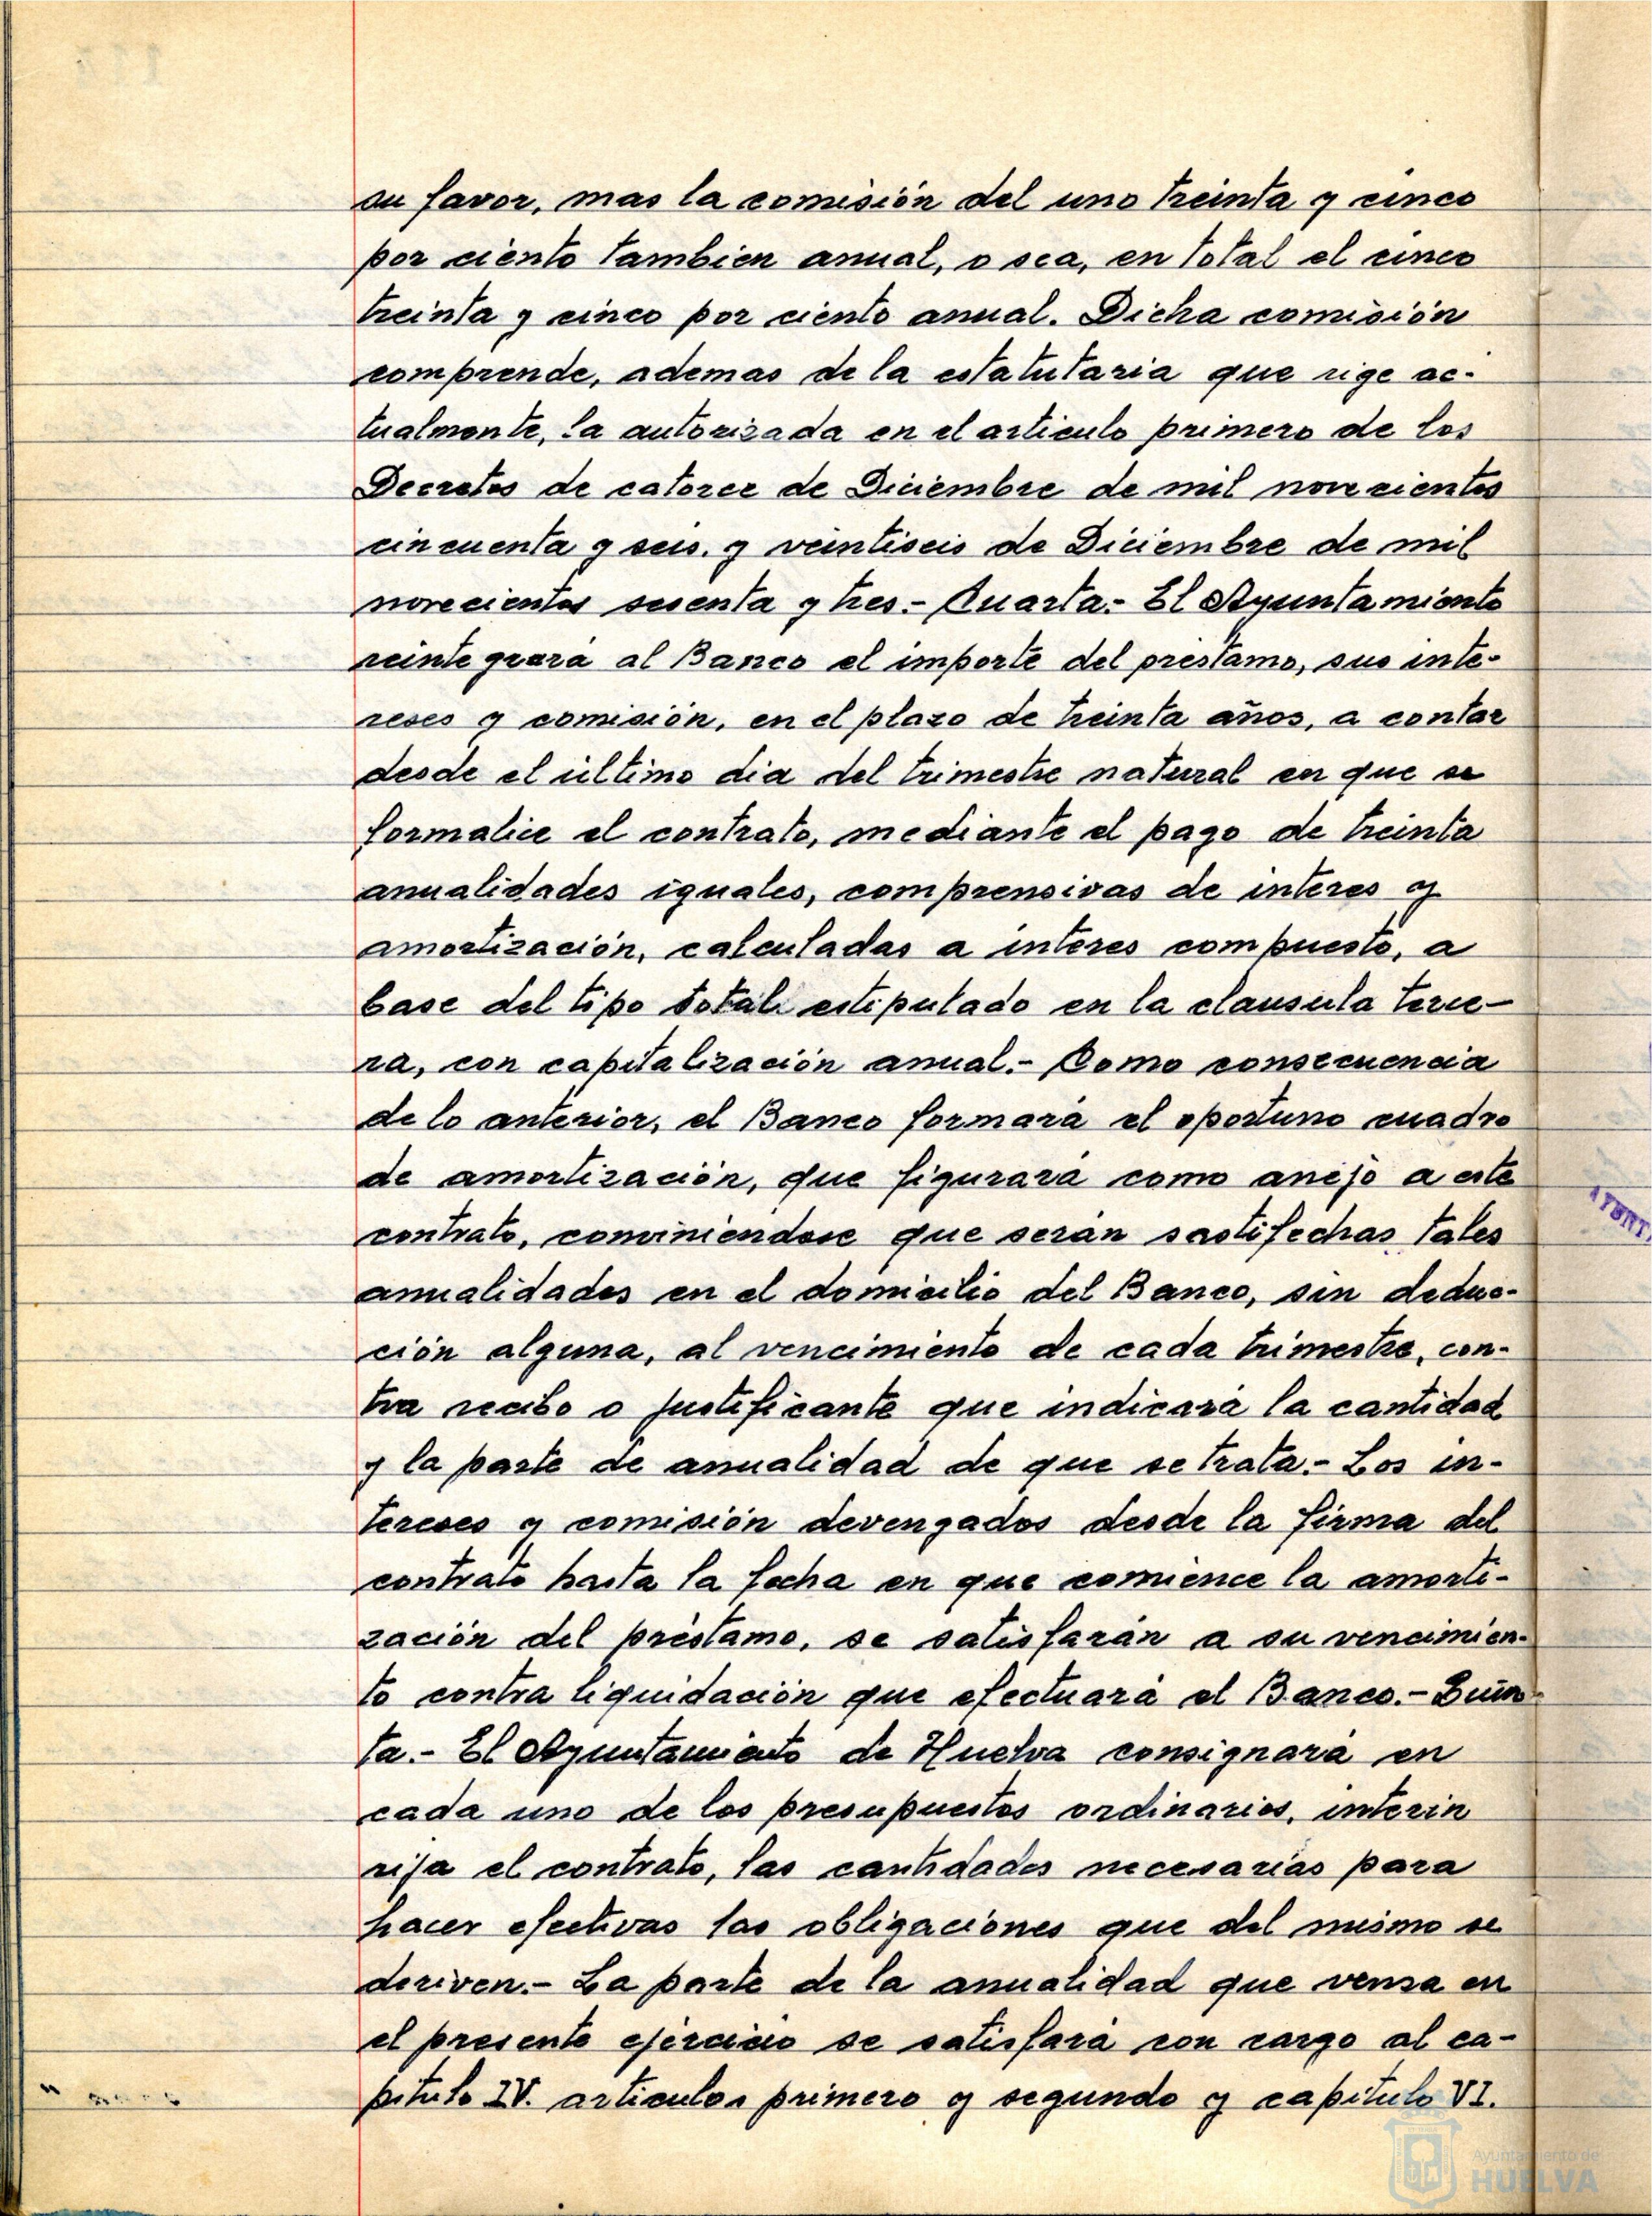 su favor, mas la comisión del uno treinta y cinco
por ciento tambien anual, o sea, en total el cinco
treinta y cinco por ciento anual. Dicha comisión
comprende, ademas de la estatutaria que rige ac-
tualmente, la autorizada en el articulo primero de los
Decretos de catorce de Diciembre de mil novecientos
cincuenta y seis. y veintiseis de Diciembre de mil
novecientos sesenta y tres.- Cuarta.- El Ayuntamiento
reintegrará al Banco el importe del préstamo, sus inte-
reses y comisión, en el plazo de treinta años, a contar
desde el último dia del trimestre natural en que se
formalice el contrato, mediante el pago de treinta
anualidades iguales, comprensivas de interes y
amortización, calculadas a interes compuesto, a
base del tipo total estipulado en la clausula terce-
ra, con capitalización anual.- Como consecuencia
de lo anterior, el Banco formará el oportuno cuadro
de amortización, que figurará como anejo a este
contrato, conviniéndose que serán sastifechas tales
anualidades en el domicilio del Banco, sin deduc-
ción alguna, al vencimiento de cada trimestre, con-
tra recibo o justificante que indicará la cantidad
y la parte de anualidad de que se trata.- Los in-
tereses y comisión devengados desde la firma del
contrato hasta la fecha en que comience la amorti-
zación del préstamo, se satisfarán a su vencimien-
to contra liquidación que efectuará el Banco.- Quin-
ta.- El Ayuntamiento de Huelva consignará en
cada uno de los presupuestos ordinarios, interin
rija el contrato, las cantidades necesarias para
hacer efectivas las obligaciones que del mismo se
deriven.- La parte de la anualidad que venza en
el presente ejercicio se satisfará con cargo al ca-
pitulo IV. articulos primero y segundo y capitulo VI.
Ayuntamiento de
HUELVA